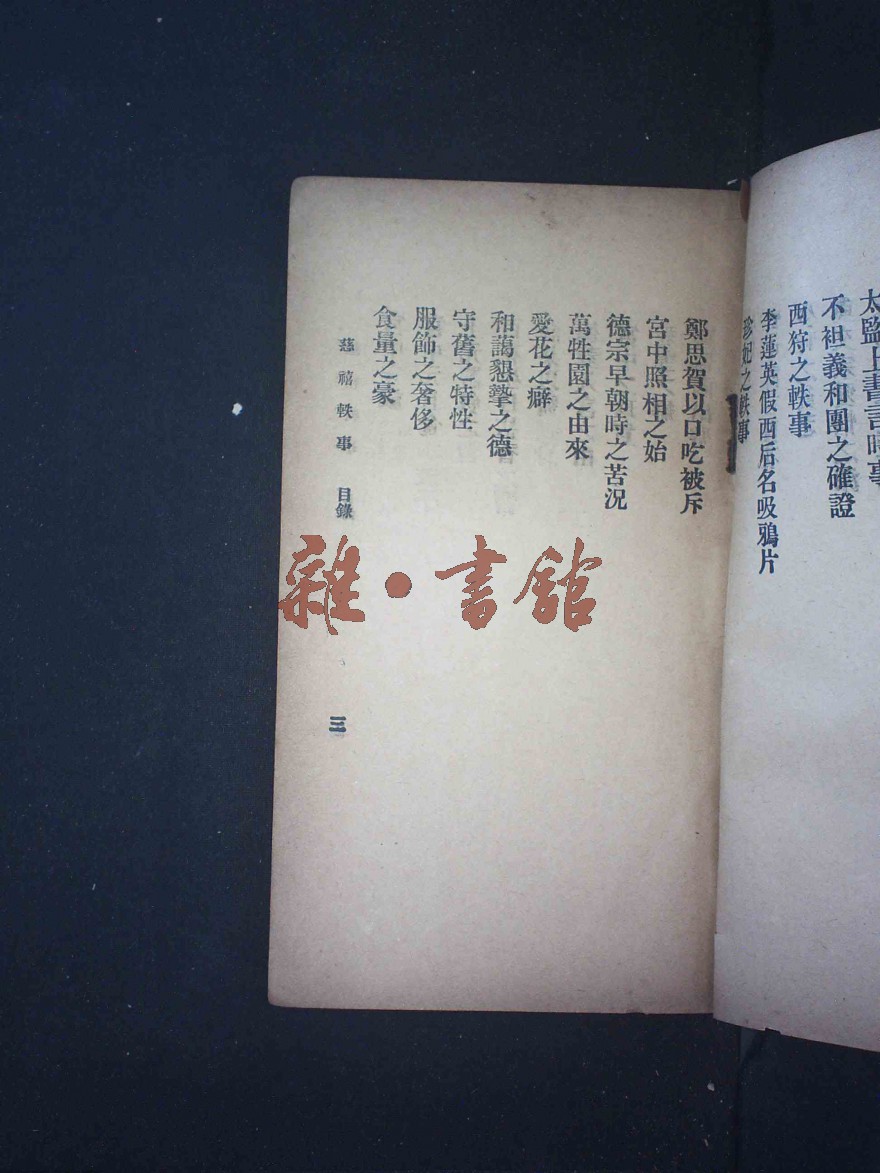 太監上書言時事
不袒義和團之確證
西狩之軼事
李蓮英假西后名吸鴉片
珍妃之軼事
鄭思賀以口吃被斥
宮中照相之始
德宗早朝時之苦況
萬牲園之由來
愛花之癖
和藹懇摯之德
守舊之特性
服飾之奢侈
食量之豪
慈禧軼事 目錄 三
雜·書館